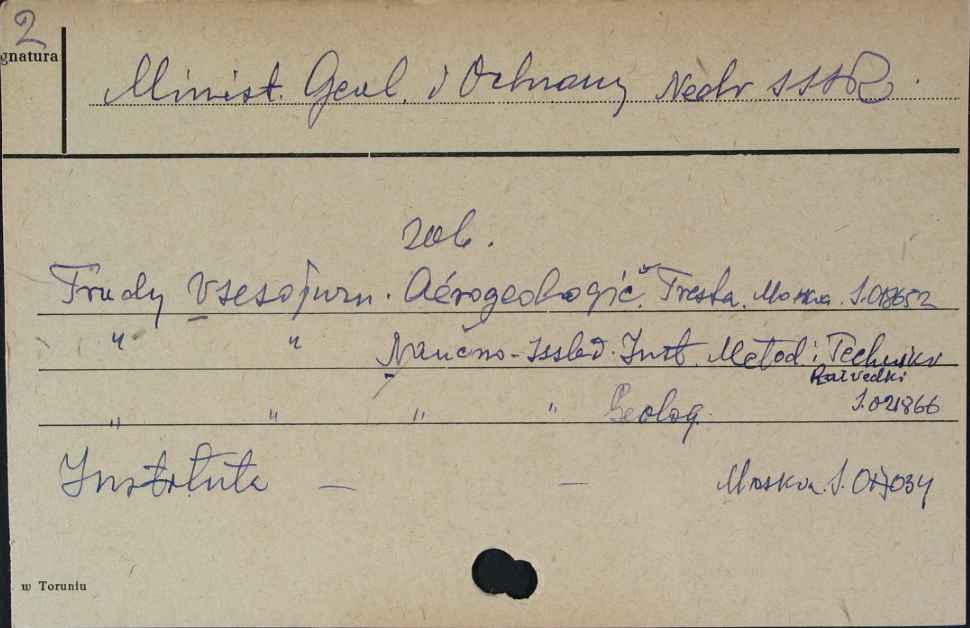 2
gnatura
Minist. Geol. i Ochrany Nedr SSSR.
zob.
Trudy Vsesojuzn. Aérogeologič. Tresta. Moskva. S.018652
" " Naučno-Issled. Inst. Metod. i Techniki
Razvedki
" " " " Geolog. S.021866
Instituta — — Moskva. S.
w Toruniu